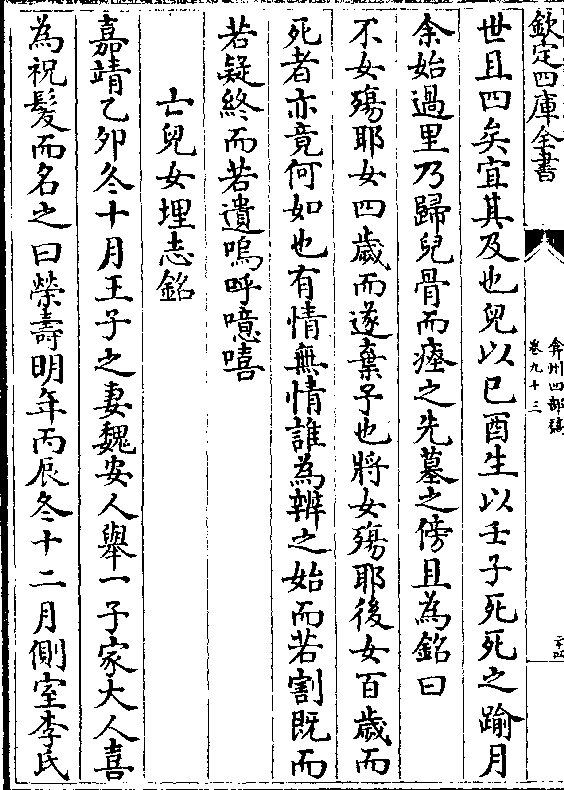 欽定四庫全書
弇州四部稿
卷九十三
世且四矣宜其及也兒以己酉生以壬子死死之踰月
余始過里乃歸兒骨而瘞之先墓之傍且為銘曰
不女殤耶女四歲而遂棄子也將女殤耶後女百歲而
死者亦竟何如也有情無情誰為辨之始而若割既而
若疑終而若遺嗚呼噫嘻
亡兒女埋志銘
嘉靖乙夘冬十月王子之妻魏安人舉一子家大人喜
為祝髮而名之曰榮壽明年丙辰冬十二月側室李氏